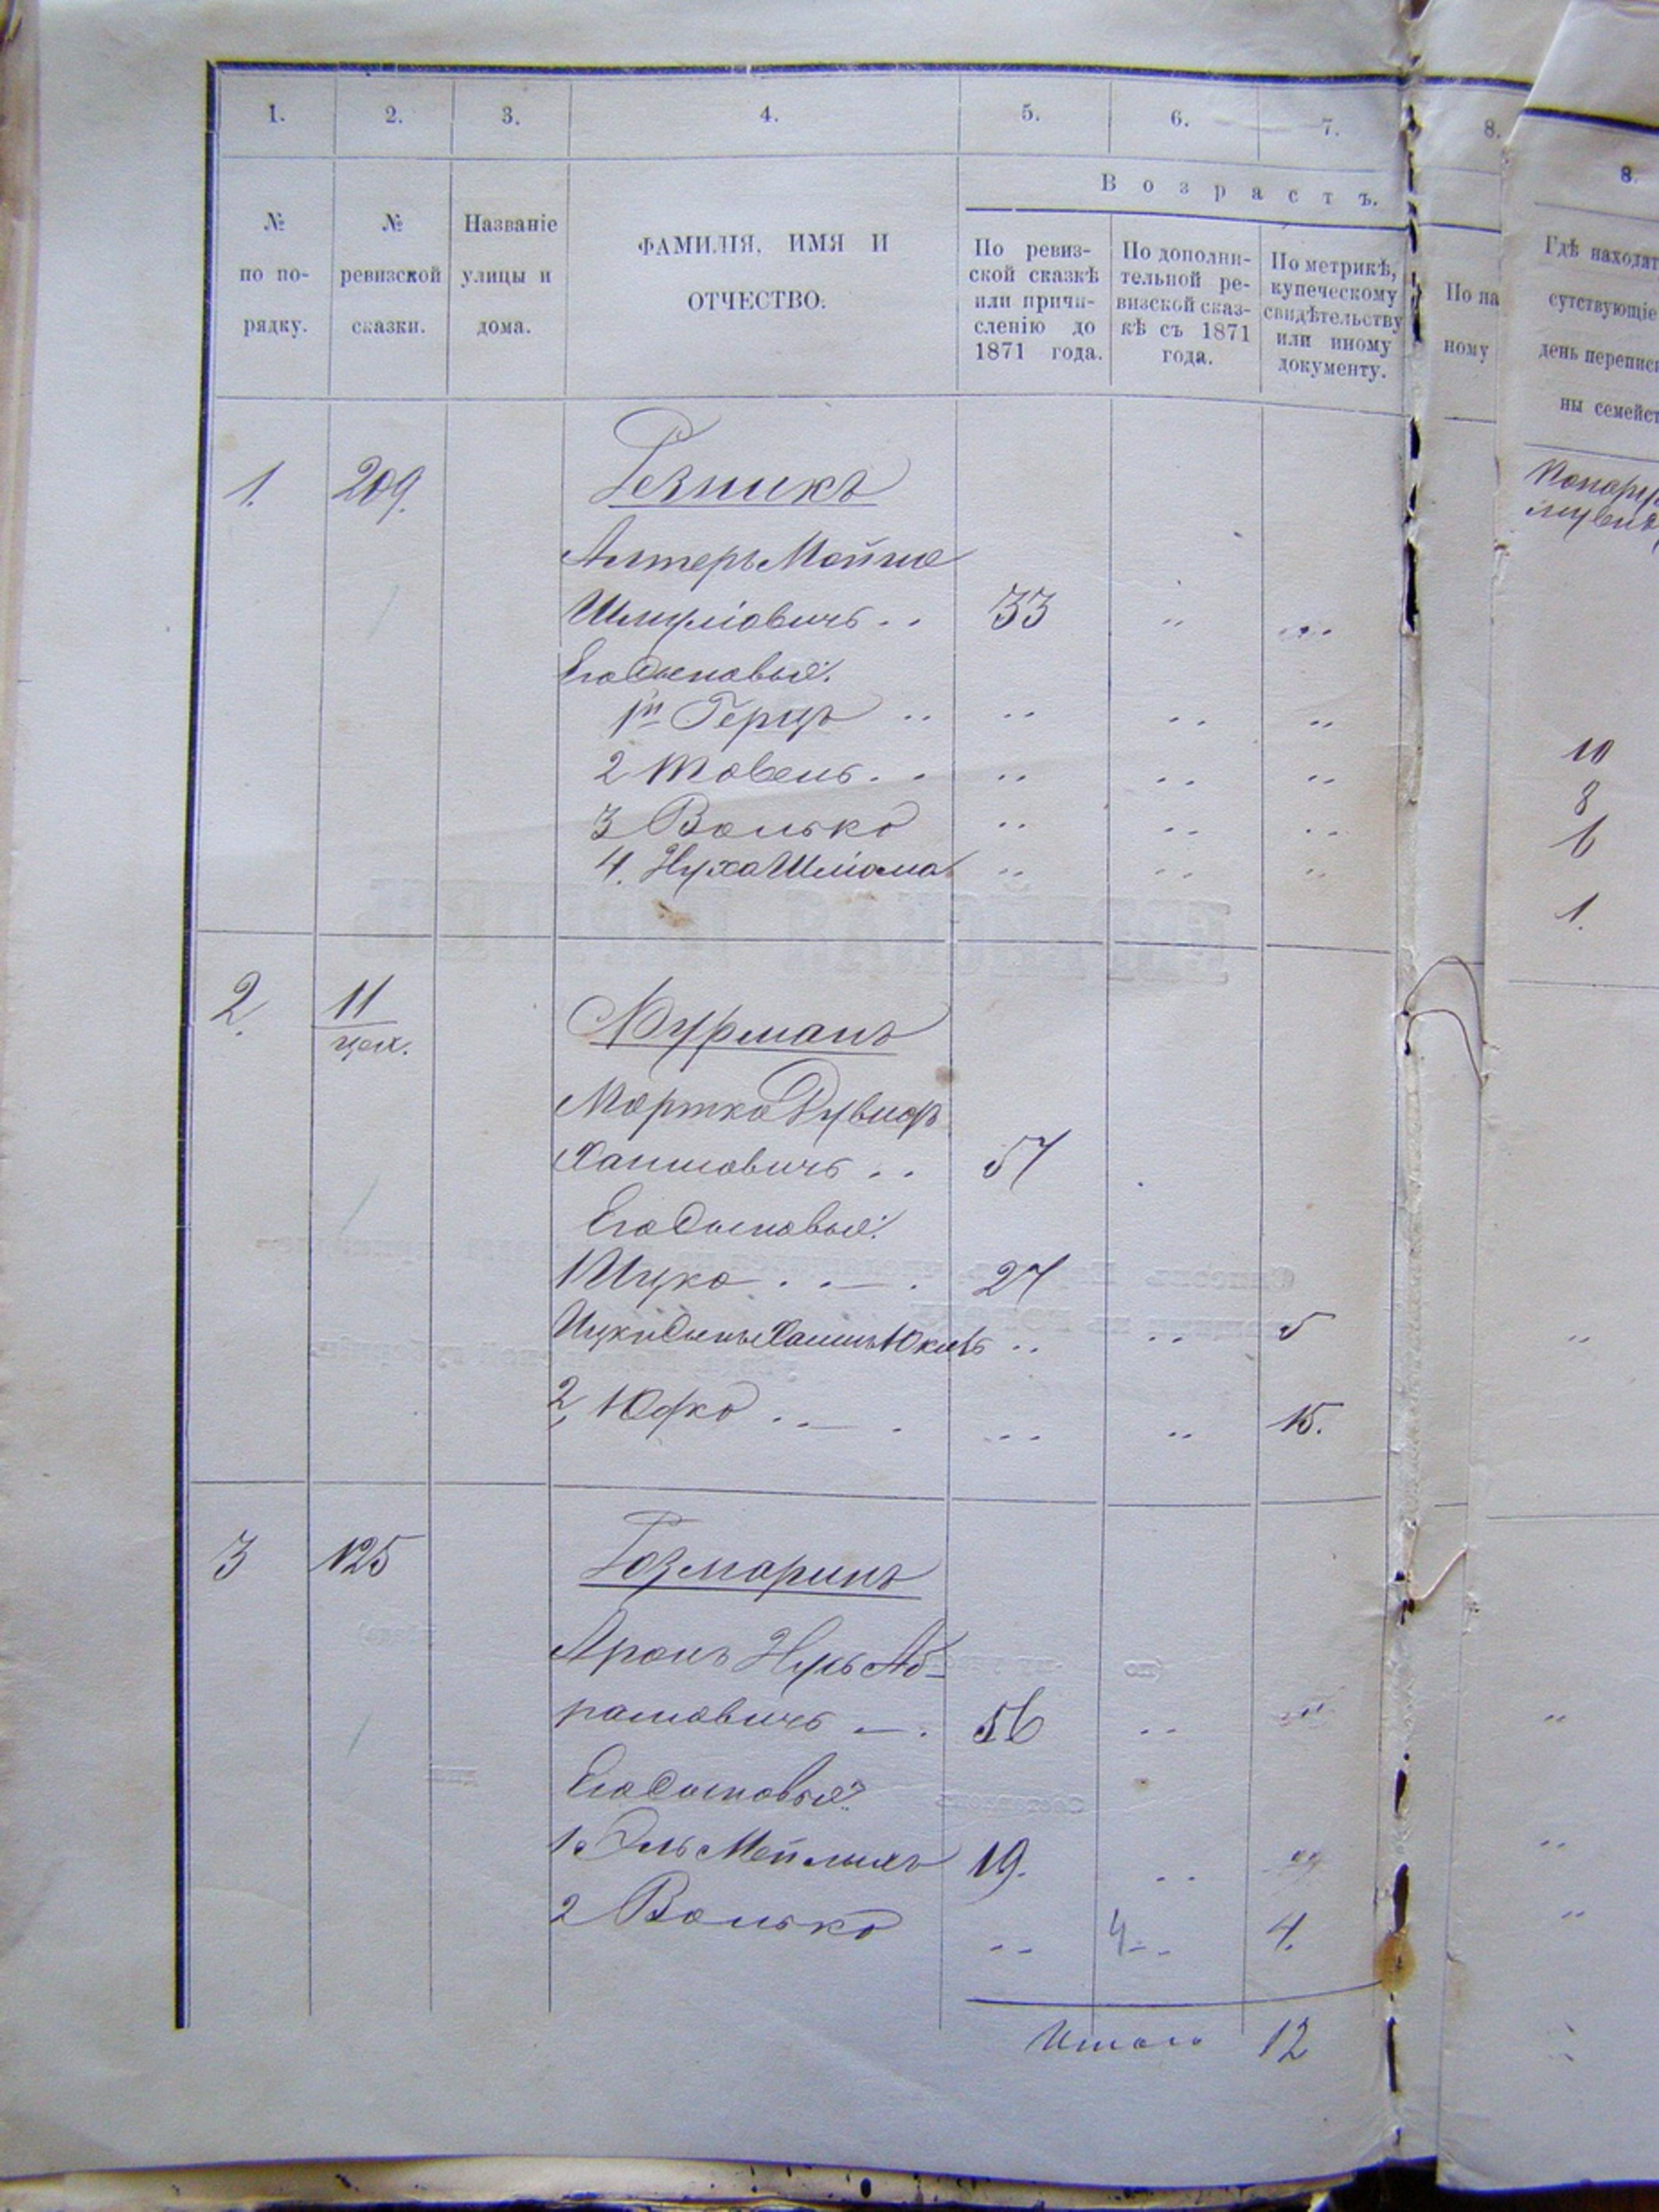 1. 2. 3. 4. 5. 6. 7. 8.
8.
Возрастъ.
№ по порядку.
№ ревизской сказки.
Названіе улицы и дома.
ФАМИЛІЯ, ИМЯ И
ОТЧЕСТВО.
По ревиз-
ской сказкѣ
или причи-
сленію до
1871 года.
По дополни-
тельной ре-
визской сказ-
кѣ съ 1871
года.
По метрикѣ,
купеческому
свидѣтельству
или иному
документу.
По на
ному
Гдѣ находят
сутствующіе
день переписи
ны семейст
1. 209. Резникъ
Алтеръ Мойше
Шмулiовичъ . . 33 " "
Его Сыновья:
1й Герцъ " " " "
2 Товель . . " " " 10
3 Волько " " " 8
4. Нуха Шлiома " " " 6
1.
2. 11
цех.
Фурманъ
Мортко Дувидъ
Хаимовичъ . . 57
Его Сыновья:
1 Ицко . . — . 27
Ицки Сынъ Хаимъ . . " 5 "
2, Юфко . . — . " " 15.
3 125 Розмаринъ
Аронъ Нуль Аб-
рамовичъ — . 56 " " "
Его Сыновья:
1. Эль Мейлыхъ 19. " " "
2 Волько " 4 " 4. "
Итого 12